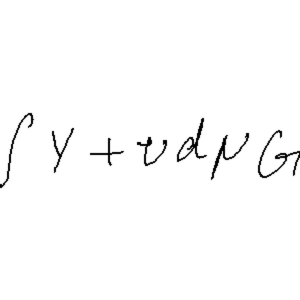 ∫ Y + v d N G